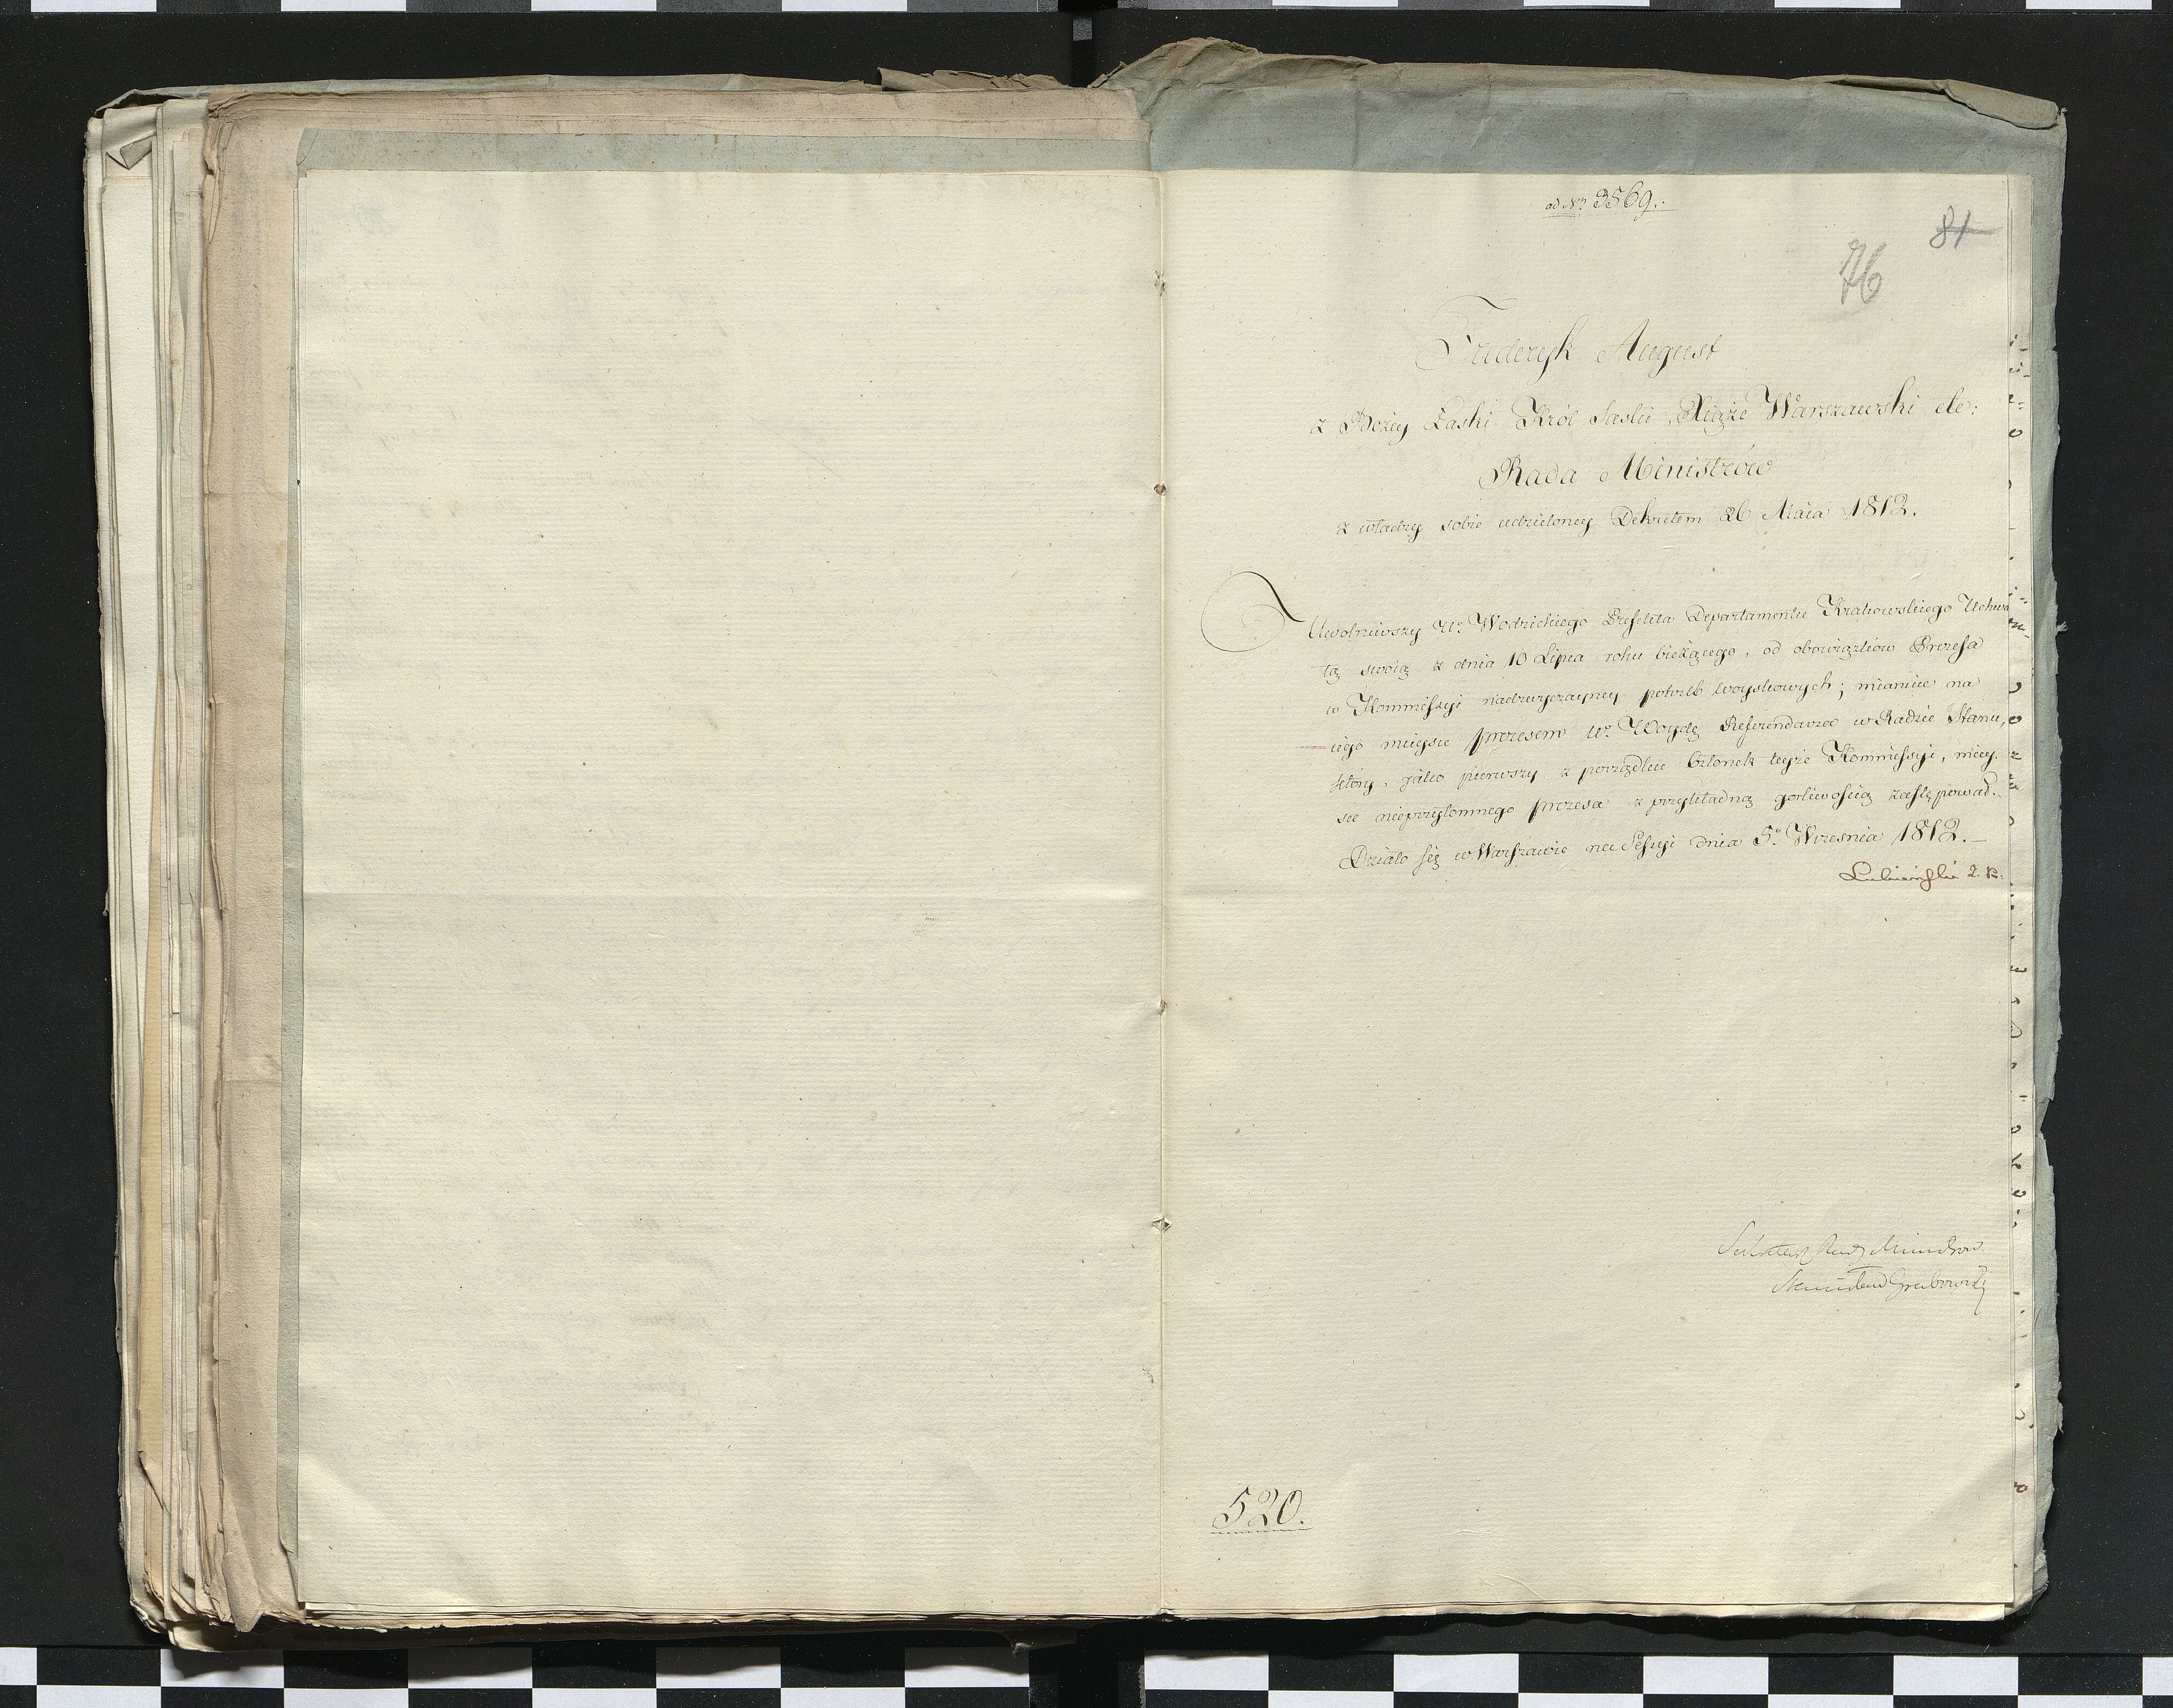 ad Nr. 3569.
81
76
Fryderyk August
z Bożey Łaski Król Saski, Xiąże Warszawski etc:
Rada Ministrów
z władzy sobie udzieloney Dekretem 26 Maia 1812.
Uwolniwszy Ur. Wodzickiego Prefekta Departamentu Krakowskiego Uchwa
łą swoią z dnia 10 Lipca roku bieżącego, od obowiązków Prezesa
w Kommissyi nadzwyczayney potrzeb woyskowych; mianuie na
iego mieysce prezesem Ur. Woydę Referendarza w Radzie Stanu,
który, jako pierwszy z porządku Członek teyże Kommissyi, miey-
sce nieprzytomnego prezesa z przykładną gorliwością zastępował.
Działo się w Warszawie na Sessyi dnia 5o. Wrzesnia 1812.—
Lubieński
Sekretarz Rady Ministrow
Stanisław Grabowski
520.